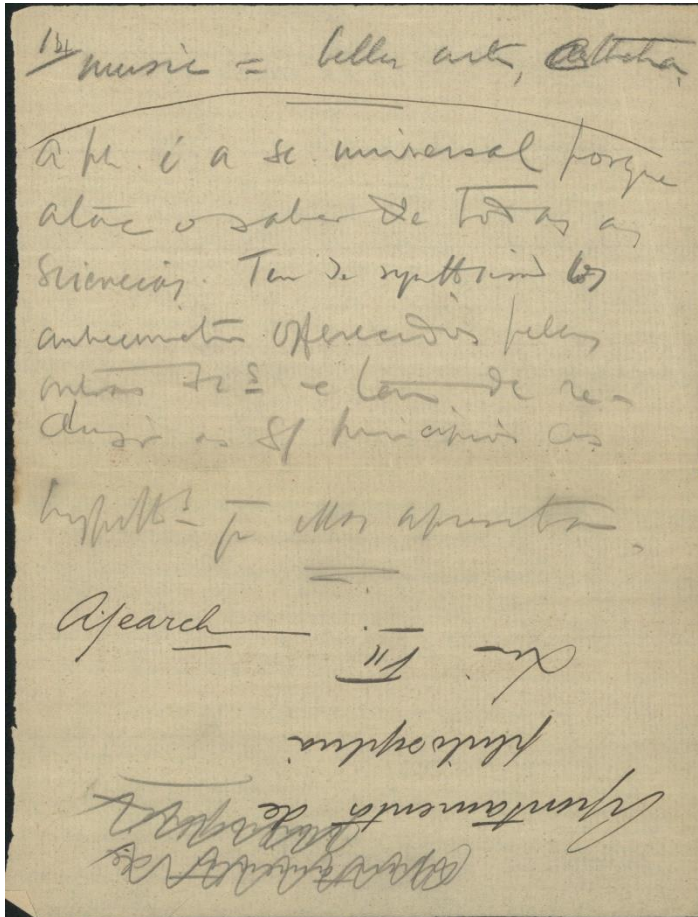 music = bellas artes,
A ph. é a sc. universal porque
atác o saber de todas as
Sciencias. Tem de synthetisar os
conhecimentos offerecidos pelas
outras sc.as e tem de re-
duzir as s/ principios as
hypoth.s q ellas apresentam.
A. Search
Liv VII
philosophia
Apontamentos de
Apontamentos de